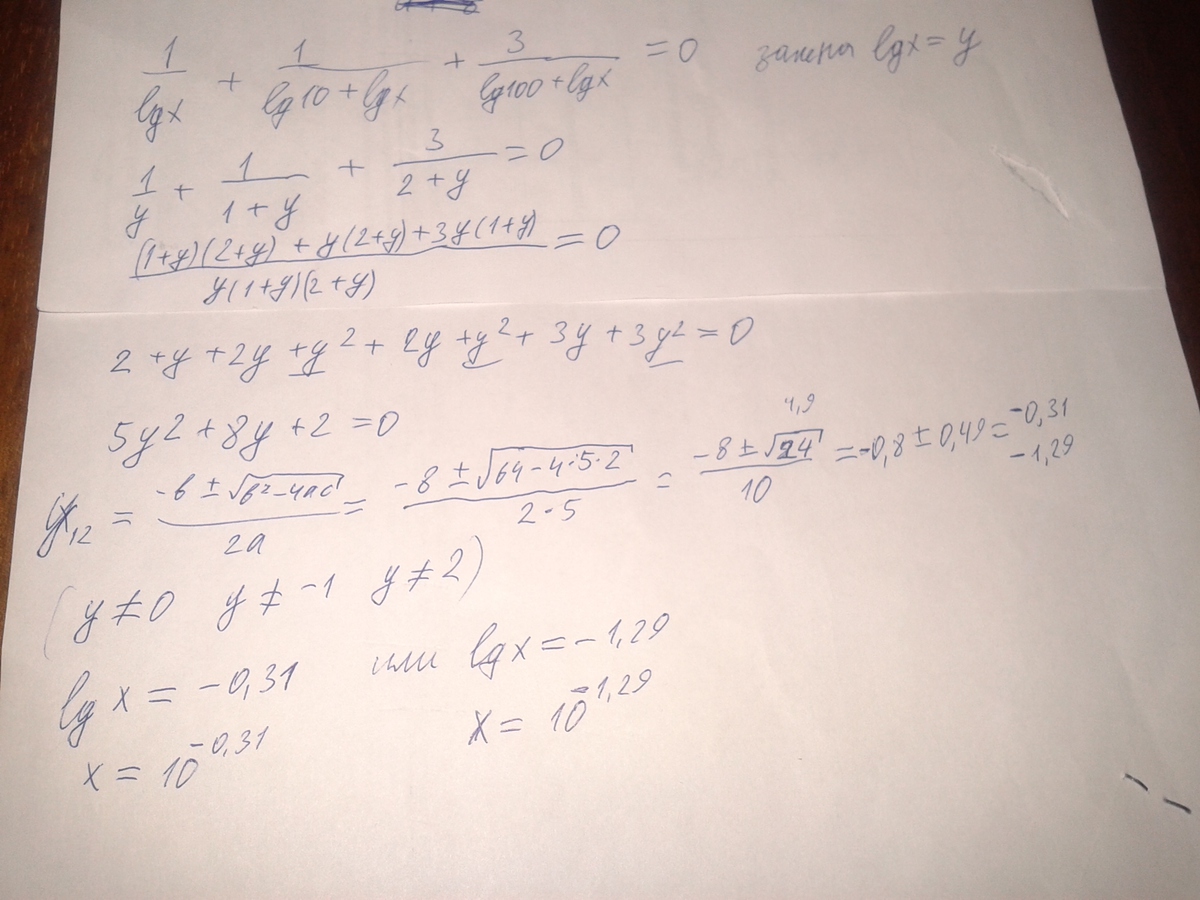 1/lgx + 1/(lg10 + lgx) + 3/(lg100 + lgx) = 0 замена lgx = y
1/y + 1/(1 + y) + 3/(2 + y) = 0
((1+y)(2+y) + y(2+y) + 3y(1+y))/(y(1+y)(2+y)) = 0
2 + y + 2y + y² + 2y + y² + 3y + 3y² = 0
5y² + 8y + 2 = 0
y₁₂ = (-b ± √(b² - 4ac))/2a = (-8 ± √(64 - 4·5·2))/(2·5) = (-8 ± √24)/10 = -0,8 ± 0,49 = -0,31 -1,29
4,9
(y ≠ 0 y ≠ -1 y ≠ 2)
lg x = -0,31 или lg x = -1,29
x = 10^-0,31 x = 10^-1,29